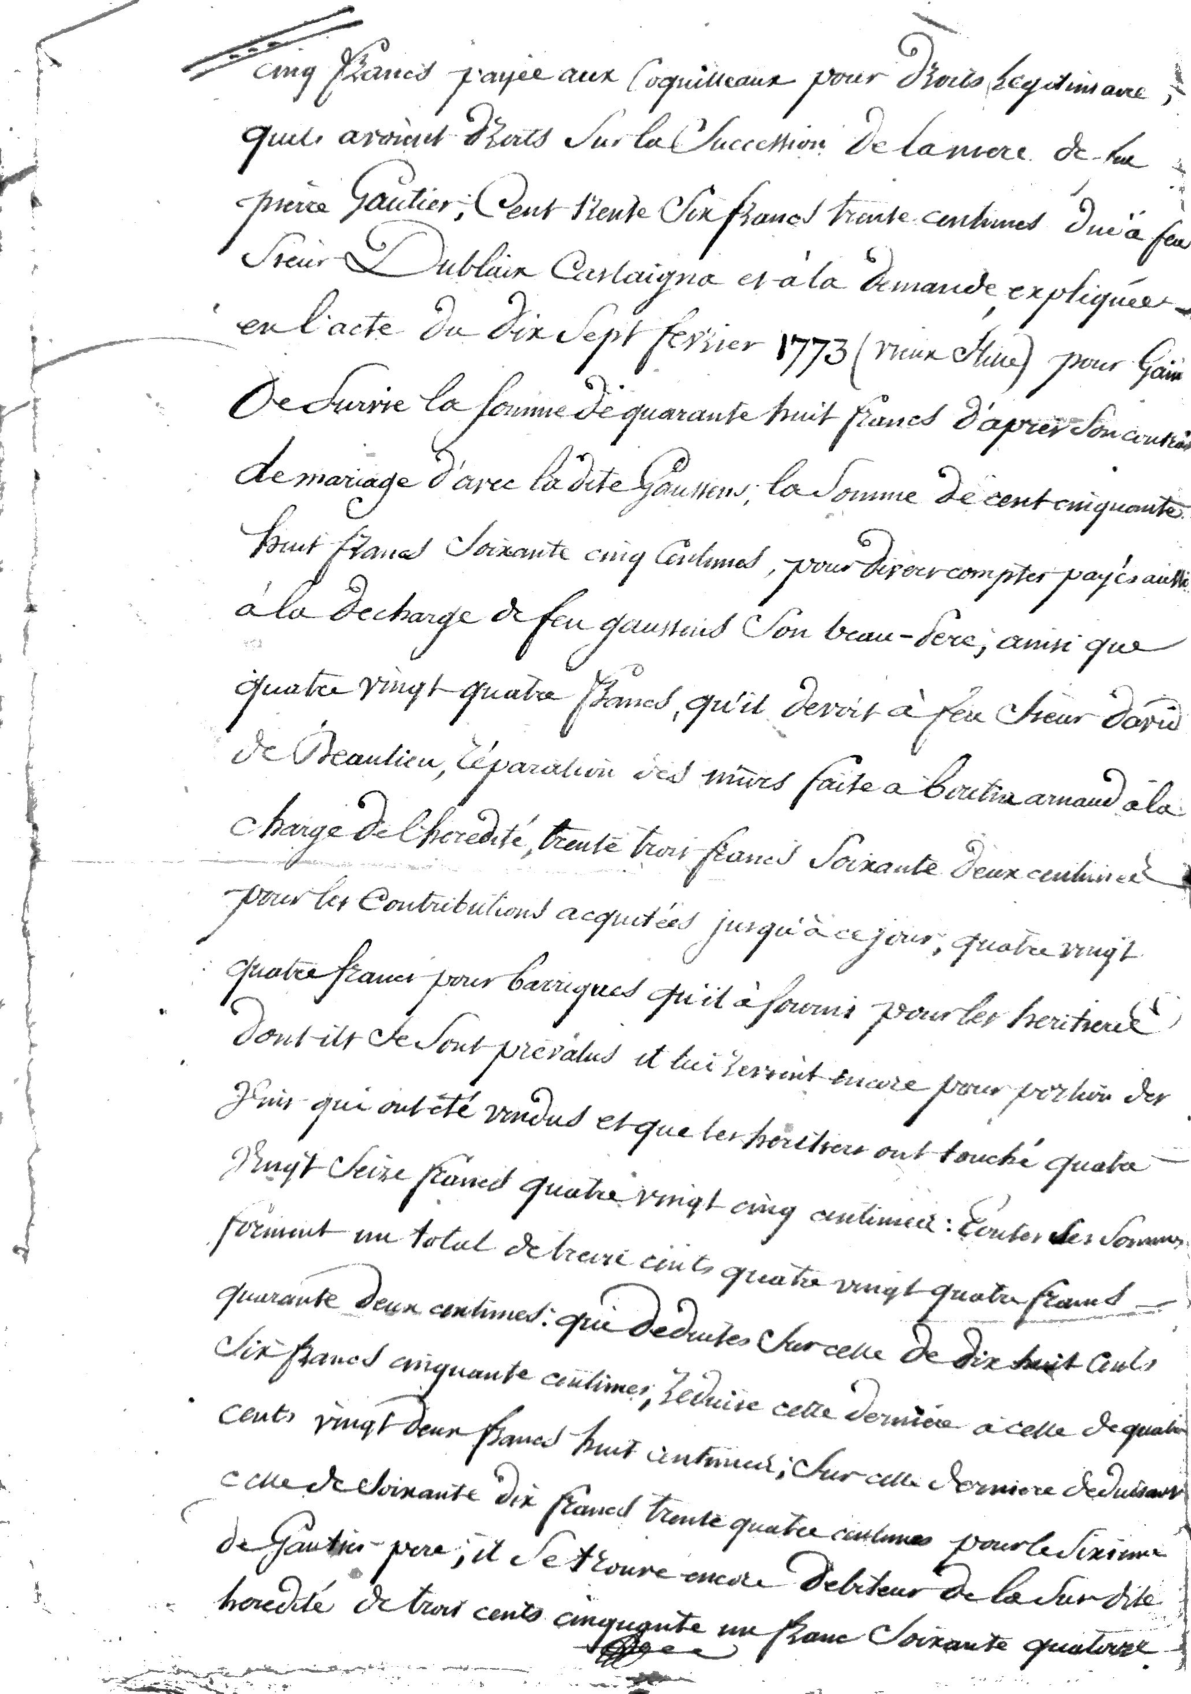 cinq francs payée aux Coquilleaux pour droits legitimaire,
quils avoient droits sur la succession de la mere de feu
pierre Gautier; Cent trente six francs trente centimes due à feu
Sieur Dublaix Castaigna et à la demande expliquée
en l'acte du dix sept fevrier 1773 (vieux stile) pour Gain
de survie la somme de quarante huit francs d'après son contrat
de mariage d'avec la dite Gaussens; la somme de cent cinquante
huit francs soixante cinq centimes, pour divers comptes payés aussi
à la decharge de feu gaussens son beau-pere; ainsi que
quatre vingt quatre francs, qu'il devoit à feu sieur david
de Beaulieu, réparation des murs faite a boutin arnaud à la
charge de l'heredité, trente trois francs soixante deux centimes
pour les Contributions acquitées jusqu'à ce jour, quatre vingt
quatre francs pour barriques qu'il à fourni pour les heritiers
dont ils se sont prévalus et lui revient encore pour portion des
vins qui ont été vendus et que les heritiers ont touché quatre
vingt seize francs quatre vingt cinq centimes: toutes les sommes
forment un total de treize cents quatre vingt quatre francs
quarante deux centimes: qui deduites sur celle de dix huit cents
six francs cinquante centimes, reduise cette derniere à celle de quatre
cents vingt deux francs huit centimes; sur cette derniere deduisant
celle de soixante dix francs trente quatre centimes pour le sixieme
de Gautier pere; il se trouve encore debiteur de la sus dite
heredité de trois cents cinquante un franc soixante quatorze